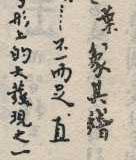 葉，家其繪
……不一而足，直
形上的大發現之一